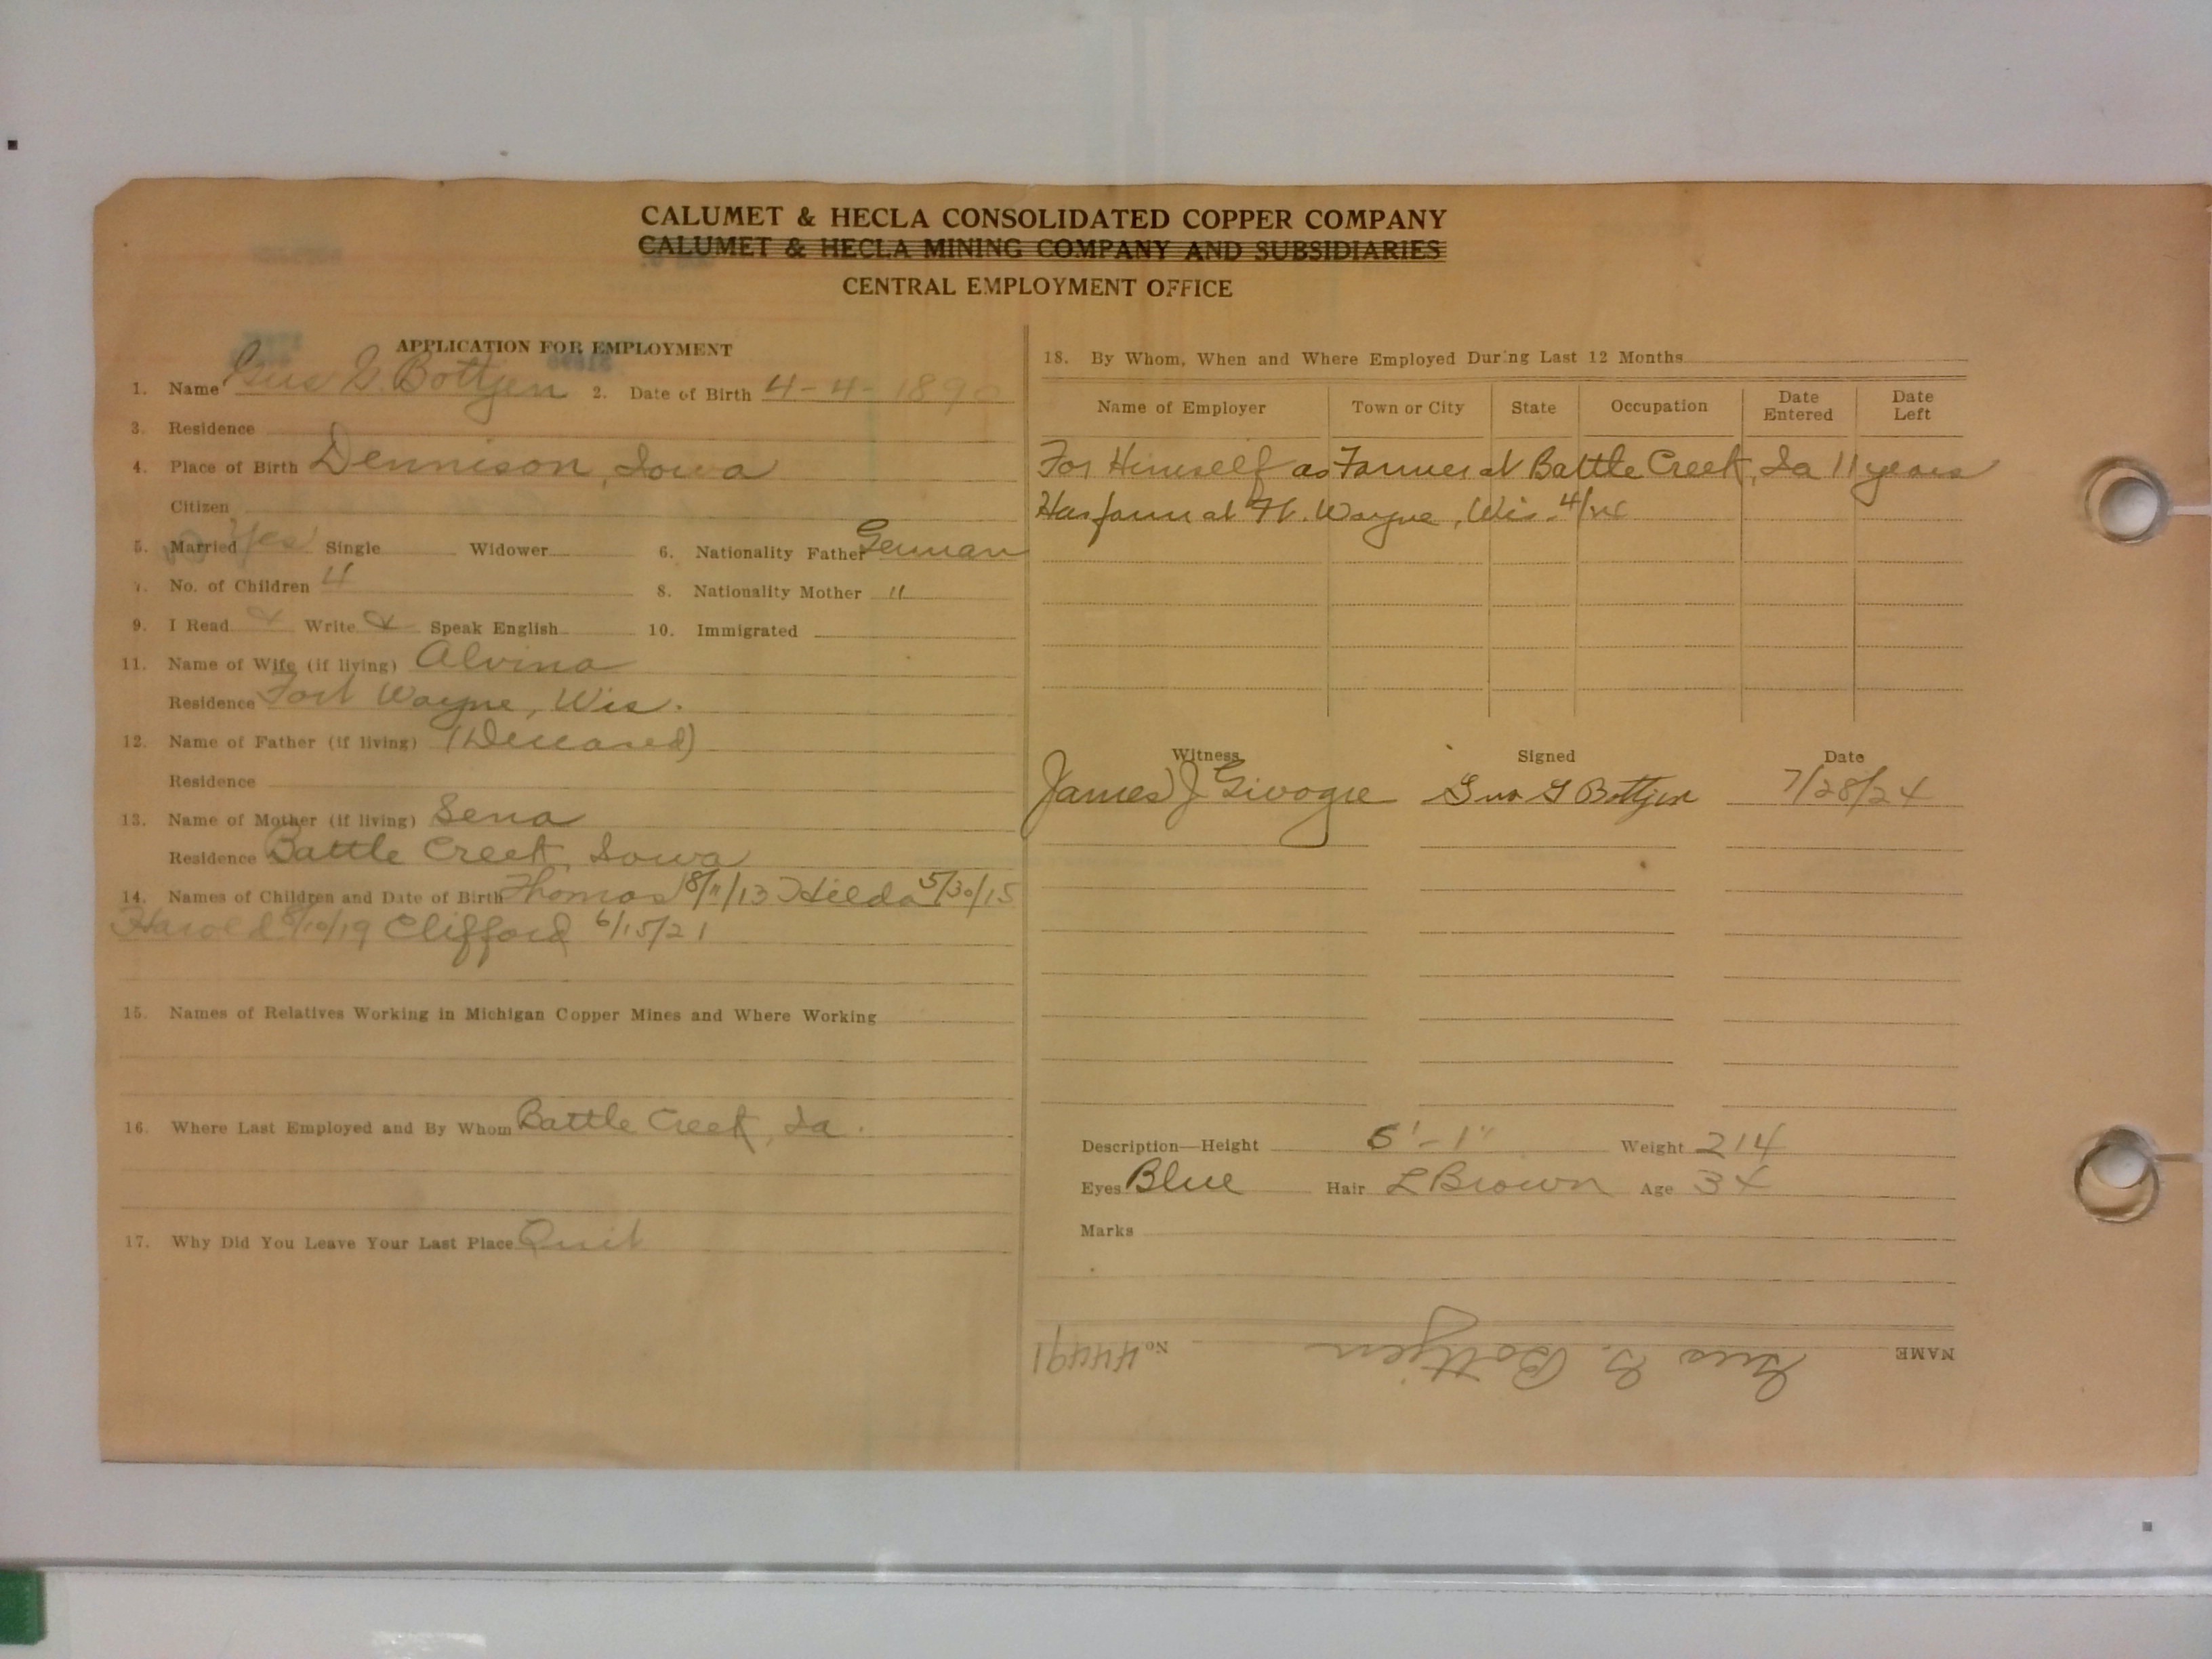 CALUMET & HECLA CONSOLIDATED COPPER COMPANY
CALUMET & HECLA MINING COMPANY AND SUBSIDIARIES
CENTRAL EMPLOYMENT OFFICE
APPLICATION FOR EMPLOYMENT
1. Name Gus G. Bottjen 2. Date of Birth 4-4-1890
3. Residence
4. Place of Birth Dennison, Iowa
Citizen
5. Married Yes Single Widower 6. Nationality Father German
7. No. of Children 4 8. Nationality Mother "
9. I Read Write Speak English 10. Immigrated
11. Name of Wife (if living) Alvina
Residence Fort Wayne, Wis.
12. Name of Father (if living) (Deceased)
Residence
13. Name of Mother (if living) Sena
Residence Battle Creek, Iowa
14. Names of Children and Date of Birth Thomas 8/11/13 Hilda 5/30/15
Harold 8/10/19 Clifford 6/15/21
15. Names of Relatives Working in Michigan Copper Mines and Where Working
16. Where Last Employed and By Whom Battle Creek, Ia.
17. Why Did You Leave Your Last Place Quit
18. By Whom, When and Where Employed During Last 12 Months
Name of Employer Town or City State Occupation Date Entered Date Left
For Himself as Farmer at Battle Creek, Ia 11 years
Has farm at Ft. Wayne, Wis.
Witness Signed Date
James J Givogre Gus G Bottjen 7/28/24
Description—Height 6'-1" Weight 214
Eyes Blue Hair L Brown Age 34
Marks
NAME Gus G. Bottjen No. 44491